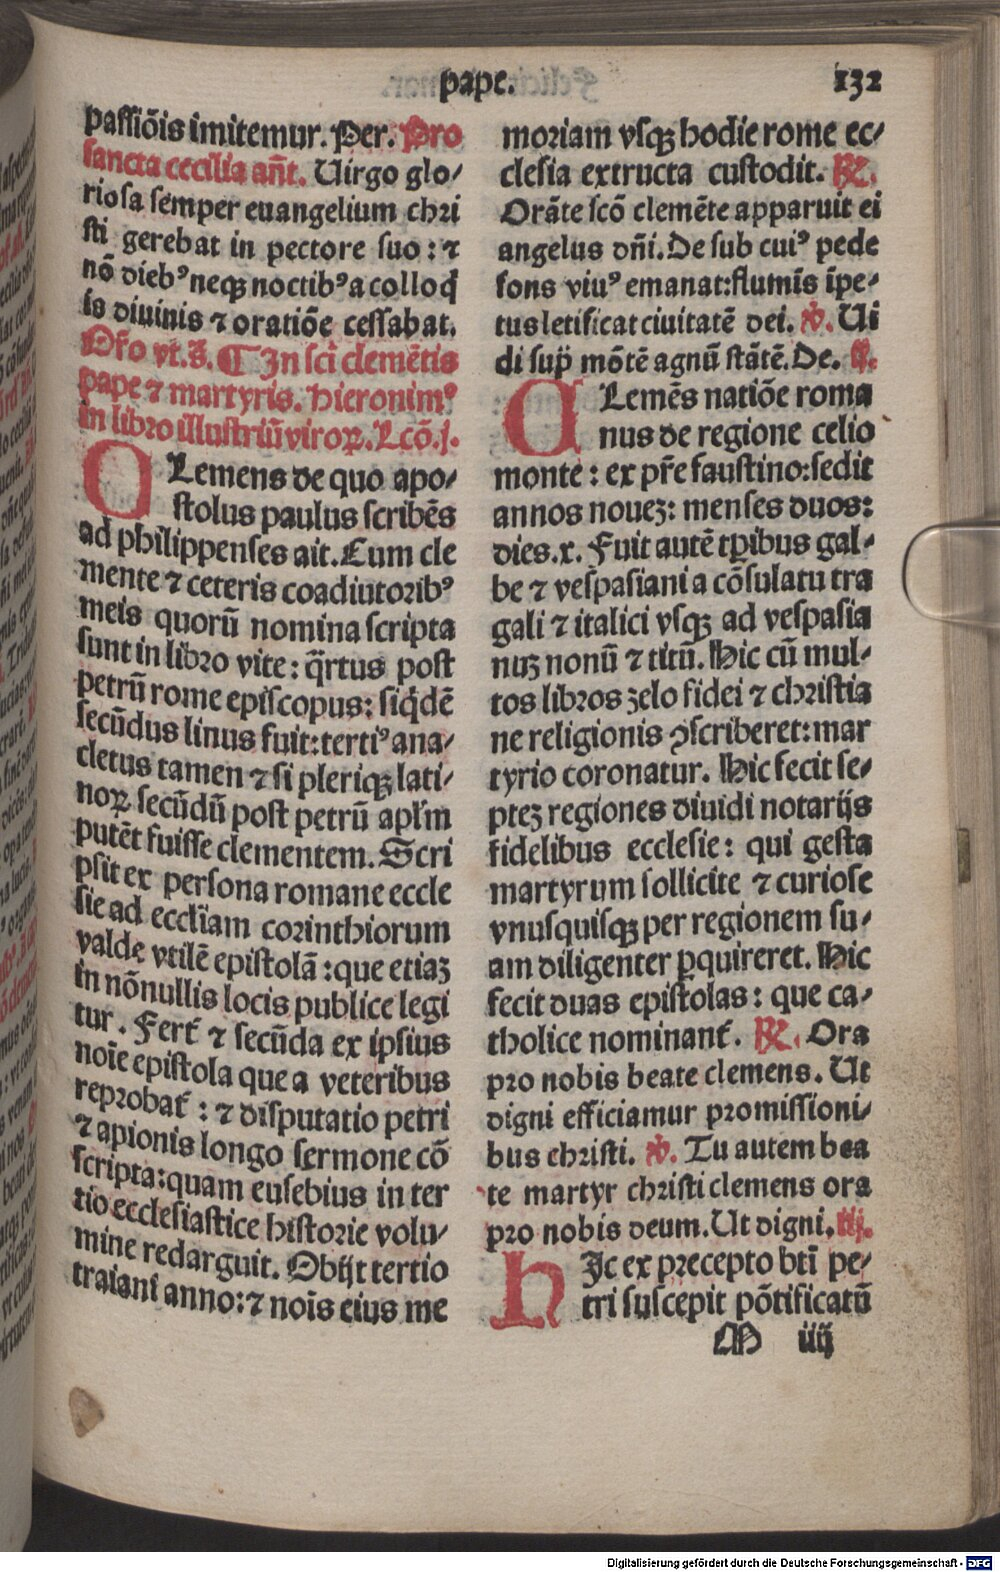 pape. 132
passiõis imitemur. Per. Pro
sancta cecilia añt. Uirgo glo⸗
riosa semper euangelium chri
sti gerebat in pectore suo: ⁊
nõ diebꝰ neqꝫ noctibꝰ a colloq̃
is diuinis ⁊ oratiõe cessabat.
Oño vt. ꝭ. ¶ In sci clemẽtis
pape ⁊ martyris. Hieronimꝰ
in libro illustriũ viroꝝ. Lcõ. j.
CLemens de quo apo⸗
stolus paulus scribẽs
ad philippenses ait. Cum cle
mente ⁊ ceteris coadiutoribꝰ
meis quorũ nomina scripta
sunt in libro vite: q̃rtus post
petrũ rome episcopus: siq̃dẽ
secũdus linus fuit: tertiꝰ ana⸗
cletus tamen ⁊ si pleriqꝫ lati⸗
noꝝ secũdũ post petrũ apłm
putẽt fuisse clementem. Scri
psit ex persona romane eccle
sie ad eccłiam corinthiorum
valde vtilẽ epistolã: que etiaꝫ
in nõnullis locis publice legi
tur. Fert̃ ⁊ secũda ex ipsius
noĩe epistola que a veteribus
reprobat̃: ⁊ disputatio petri
⁊ apionis longo sermone cõ
scripta: quam eusebius in ter
tio ecclesiastice historie volu⸗
mine redarguit. Obijt tertio
traiani anno: ⁊ noĩs eius me
moriam vsqꝫ hodie rome ec⸗
clesia extructa custodit. ℟.
Orãte scõ clemẽte apparuit ei
angelus dñi. De sub cuiꝰ pede
fons viuꝰ emanat: flumĩs ĩpe⸗
tus letificat ciuitatẽ dei. ℣. Ui
di sup̃ mõtẽ agnũ stãtẽ. De. ij.
CLemẽs natiõe roma
nus de regione celio
monte: ex pr̃e faustino: sedit
annos noueꝫ: menses duos:
dies. x. Fuit autẽ tp̃ibus gal⸗
be ⁊ vespasiani a cõsulatu tra
gali ⁊ italici vsqꝫ ad vespasia
nuꝫ nonũ ⁊ titũ. Hic cũ mul⸗
tos libros zelo fidei ⁊ christia
ne religionis ꝯscriberet: mar
tyrio coronatur. Hic fecit se⸗
pteꝫ regiones diuidi notarijs
fidelibus ecclesie: qui gesta
martyrum sollicite ⁊ curiose
vnusquisqꝫ per regionem su⸗
am diligenter ꝑquireret. Hic
fecit duas epistolas: que ca⸗
tholice nominant̃. ℟. Ora
pro nobis beate clemens. Ut
digni efficiamur promissioni⸗
bus christi. ℣. Tu autem bea
te martyr christi clemens ora
pro nobis deum. Ut digni. iij.
HIc ex precepto bti̅ pe⸗
tri suscepit põtificatũ
M iiij
Digitalisierung gefördert durch die Deutsche Forschungsgemeinschaft - DFG